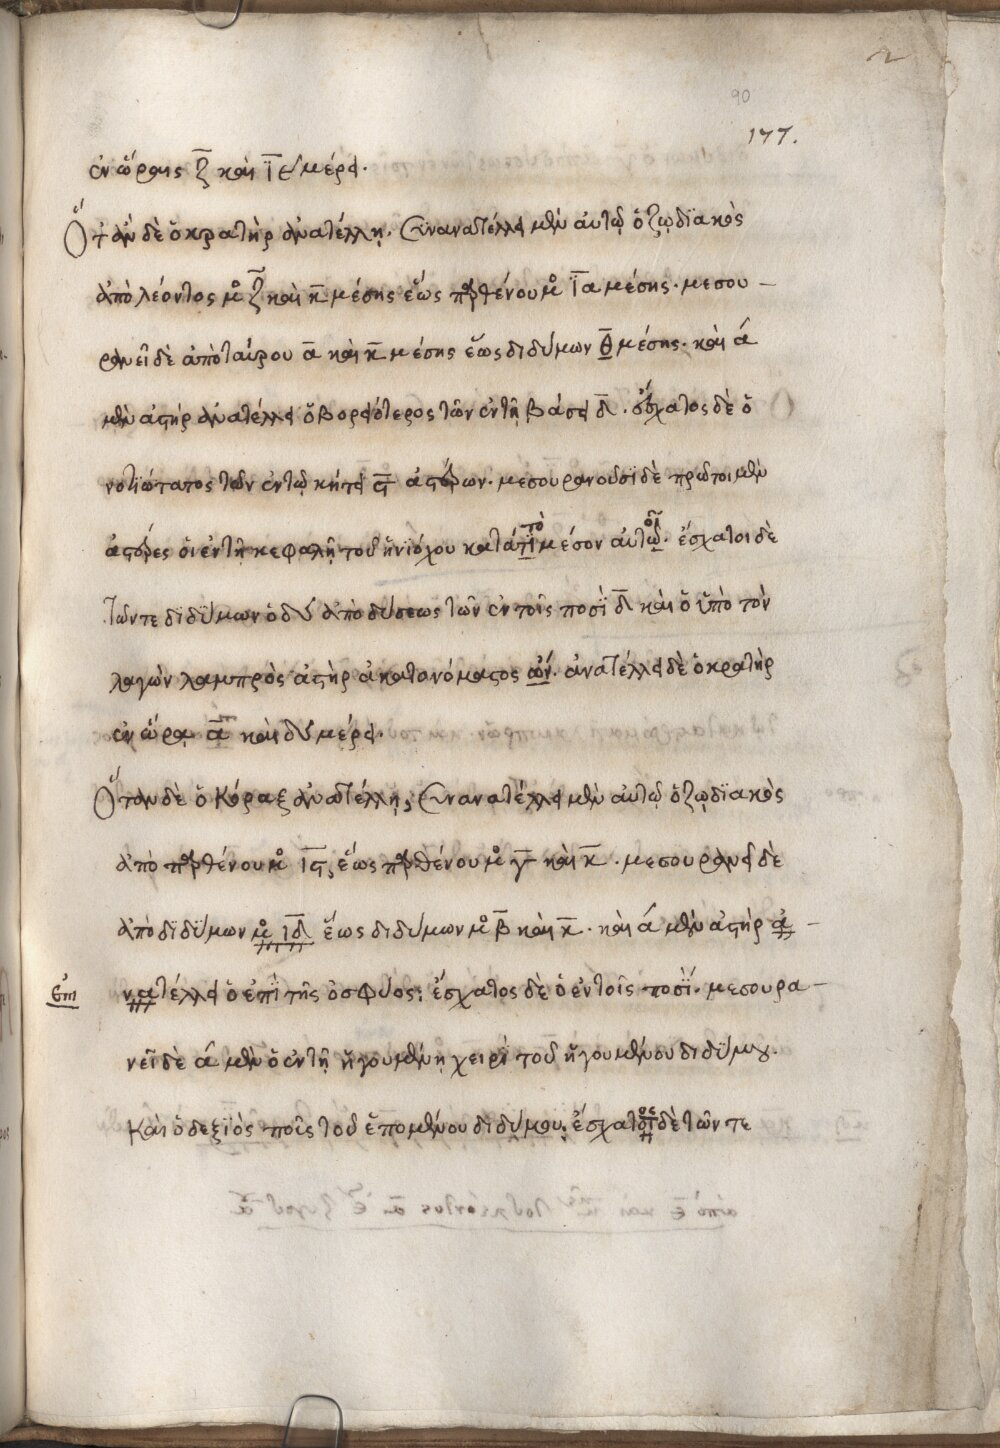 90
177.
ἐν ὥραις ζ̅ καὶ ι̅ε̅ μέρει.
Ὅταν δὲ ὁ κρατὴρ ἀνατέλλῃ. συνανατέλλει μὲν αὐτῷ ὁ ζῳδϊακὸς
ἀπὸ λέοντος μ̊ ζ̅ καὶ κ̅ μέσης ἕως παρθένου μ̊ ι̅α̅ μέσης. μεσου –
ρανεῖ δὲ ἀπὸ ταύρου α̅ καὶ κ̅ μέσης ἕως διδύμων θ̅ μέσης. καὶ α´
μὲν ἀστὴρ ἀνατέλλει ὁ βορειότερος τῶν ἐν τῇ βάσει δ̅. ἔσχατος δὲ ὁ
νοτϊώτατος τῶν ἐν τῷ κήτει ϛ̅ ἀστέρων. μεσουρανοῦσϊ δὲ πρῶτοι μὲν
ἀστέρες οἱ ἐν τῇ κεφαλῇ τοῦ ἡνϊόχου κατὰ τὸ μέσον αὐτῶ. ἔσχατοι δὲ
τῶν τε δϊδύμων ὁ δύ ἀπὸ δύσεως τῶν ἐν τοῖς ποσῒ δ̅ καὶ ὁ ὑπὸ τὸν
λαγὼν λαμπρὸς ἀστὴρ ἀκατανόμαστος ὤν. ἀνατέλλει δὲ ὁ κρατὴρ
ἐν ὥρᾳ α̅ καὶ δύ μέρει.
Ὅταν δὲ ὁ Κόραξ ἀνατέλλῃ, συνανατέλλει μὲν αὐτῷ ὁ ζῳδϊακὸς
ἀπὸ παρθένου μ̊ ι̅ϛ̅, ἕως παρθένου μ̊ γ̅ καὶ κ̅. μεσουρανεῖ δὲ
ἀπὸ δϊδύμων μ̊ ι̅δ̅ ἕως διδύμων μ̊ β̅ καὶ κ̅. καὶ α´ μὲν ἀστὴρ ἀ –
νατέλλει ὁ ἐπῒ τῆς ὀσφύος: ἔσχατος δὲ ὁ ἐν τοῖς ποσΐ. μεσουρα –
νεῖ δὲ α´ μὲν ὁ ἐν τῇ ἡγουμένῃ χειρὶ τοῦ ἡγουμένου διδύμου.
Καὶ ὁ δεξϊὸς ποῖς τοῦ ἑπομένου διδύμου: ἔσχατοι δὲ τῶν τε